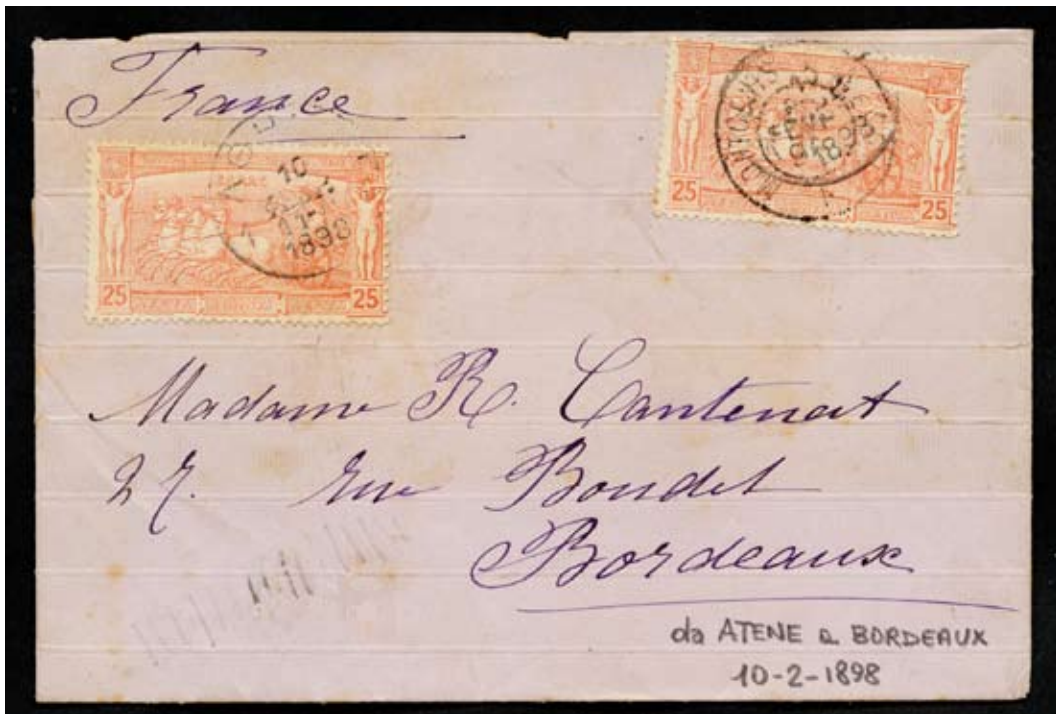 France
25 25
10
1898
25 25
1898
Madame R. Cantenat
27. Rue Boudet
Bordeaux
da ATENE a BORDEAUX
10-2-1898